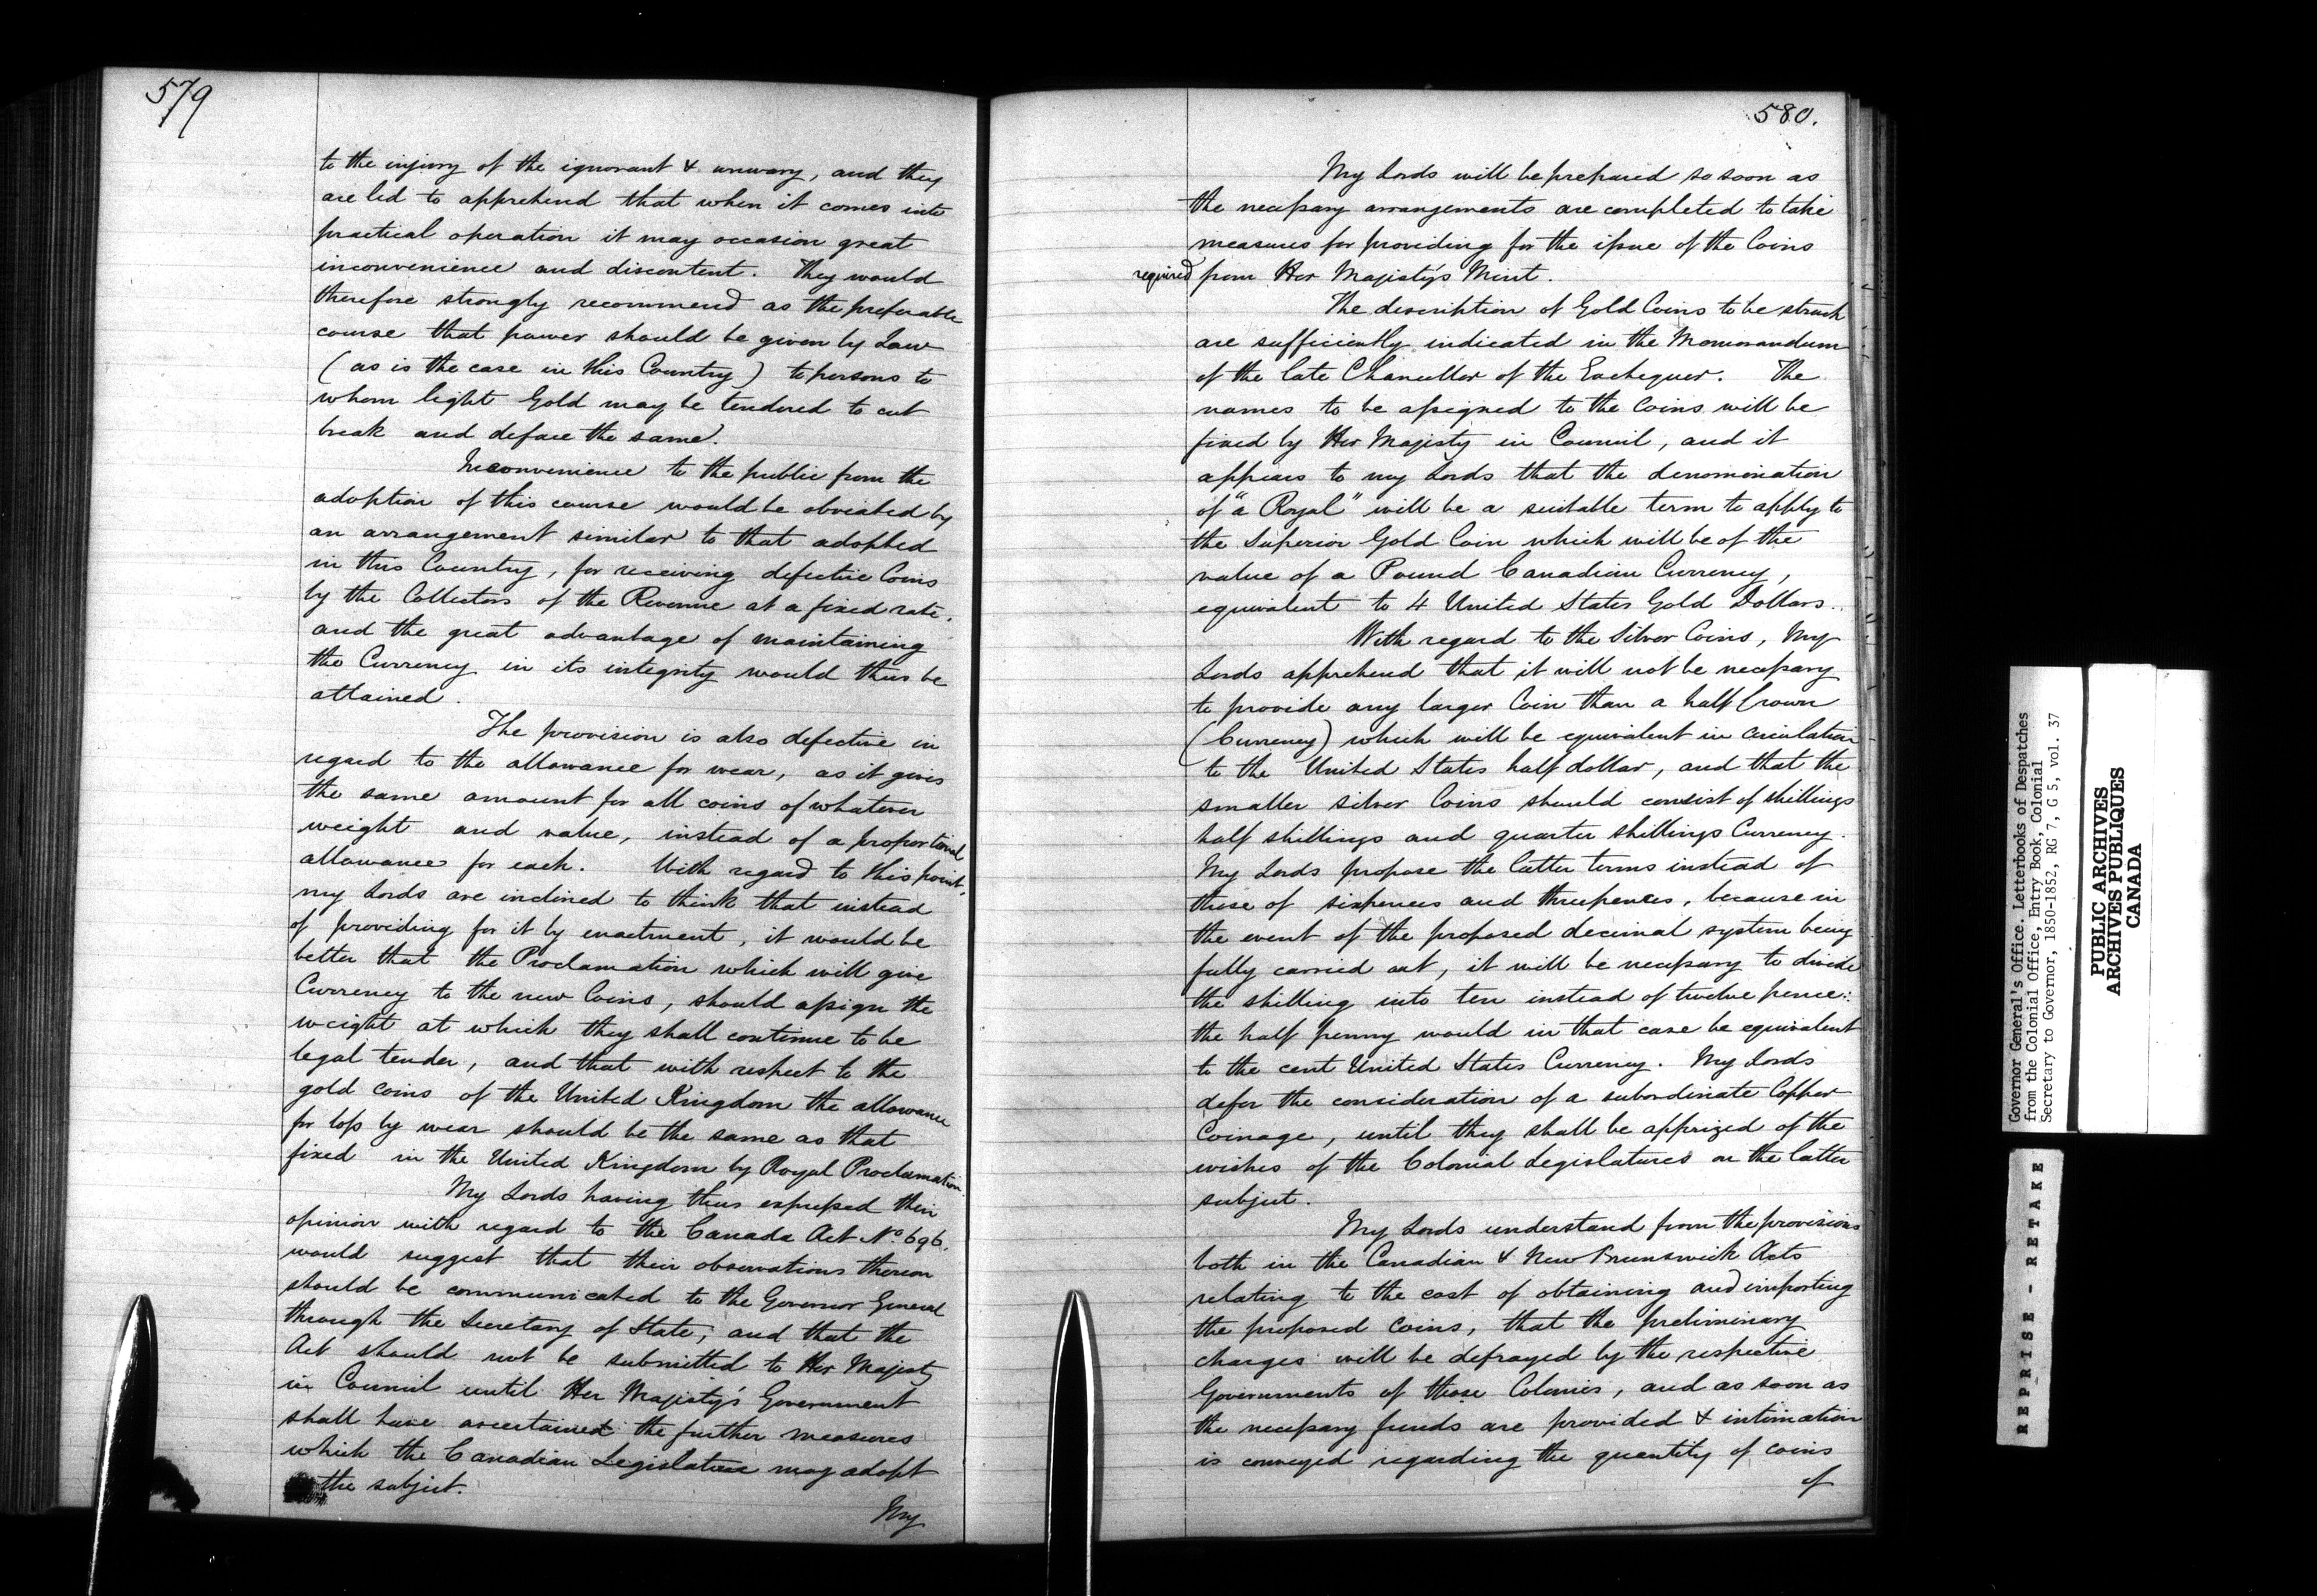 579
to the injury of the ignorant & unwary, and they
are led to apprehend that when it comes into
practical operation it may occasion great
inconvenience and discontent. They would
therefore strongly recommend as the preferable
course that power should be given by Law
(as is the case in this Country) to persons to
whom light Gold may be tendered to cut
break and deface the same.
Inconvenience to the public from the
adoption of this course would be obviated by
an arrangement similar to that adopted
in this Country, for receiving defective Coins
by the Collectors of the Revenue at a fixed rate,
and the great advantage of maintaining
the Currency in its integrity would thus be
attained.
The provision is also defective in
regard to the allowance for wear, as it gives
the same amount for all coins of whatever
weight and value, instead of a proportional
allowance for each. With regard to this point,
my Lords are inclined to think that instead
of providing for it by enactment, it would be
better that the Proclamation which will give
Currency to the new Coins, should assign the
weight at which they shall continue to be
legal tender, and that with respect to the
gold coins of the United Kingdom the allowance
for loss by wear should be the same as that
fixed in the United Kingdom by Royal Proclamation.
My Lords having thus expressed their
opinion with regard to the Canada Act No. 696.
would suggest that their observations thereon
should be communicated to the Governor General
through the Secretary of State, and that the
Act should not be submitted to Her Majesty
in Council until Her Majesty's Government
shall have ascertained the further measures
which the Canadian Legislature may adopt
the subject.
My
580.
My Lords will be prepared so soon as
the necessary arrangements are completed to take
measures for providing for the issue of the Coins
required from Her Majesty's Mint.
The description of Gold Coins to be struck
are sufficiently indicated in the Memorandum
of the late Chancellor of the Exchequer. The
names to be assigned to the Coins will be
fixed by Her Majesty in Council, and it
appears to my Lords that the denomination
of "a Royal" will be a suitable term to apply to
the Superior Gold Coin which will be of the
value of a Pound Canadian Currency,
equivalent to 4 United States Gold Dollars.
With regard to the Silver Coins, My
Lords apprehend that it will not be necessary
to provide any larger Coin than a half Crown
(Currency) which will be equivalent in circulation
to the United States half dollar, and that the
smaller silver Coins should consist of shillings
half shillings and quarter shillings Currency.
My Lords propose the latter terms instead of
those of sixpences and threepences, because in
the event of the proposed decimal system being
fully carried out, it will be necessary to divide
the shilling into ten instead of twelve pence:
the half penny would in that case be equivalent
to the cent United States Currency. My Lords
defer the consideration of a subordinate Copper
Coinage, until they shall be apprized of the
wishes of the Colonial Legislatures on the latter
subject.
My Lords understand from the provisions
both in the Canadian & New Brunswick Acts
relating to the cost of obtaining and importing
the proposed Coins, that the preliminary
charges will be defrayed by the respective
Governments of those Colonies, and as soon as
the necessary funds are provided & intimation
is conveyed regarding the quantity of coins
of
Governor General's Office. Letterbooks of Despatches
from the Colonial Office, Entry Book, Colonial
Secretary to Governor, 1850-1852, RG 7, G 5, vol. 37
PUBLIC ARCHIVES
ARCHIVES PUBLIQUES
CANADA
REPRISE - RETAKE